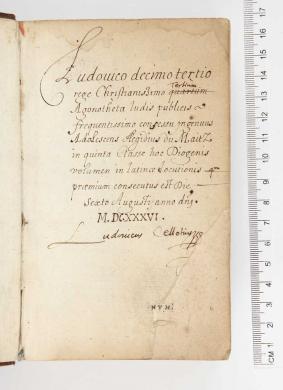 Ludovico decimo tertio
rege Christianissimo quartum tertium
Agonotheta ludis publicis
frequentissimo consessu ingenuus
Adolescens Ægidius du Maitz
in quinta classe hoc Diogenis
volumen in latinæ locutionis
præmium consecutus est Die
Sexto Augusti anno dnj
M.DCXXXVI.
Ludovicus Cellotius
CM 1 2 3 4 5 6 7 8 9 10 11 12 13 14 15 16 17